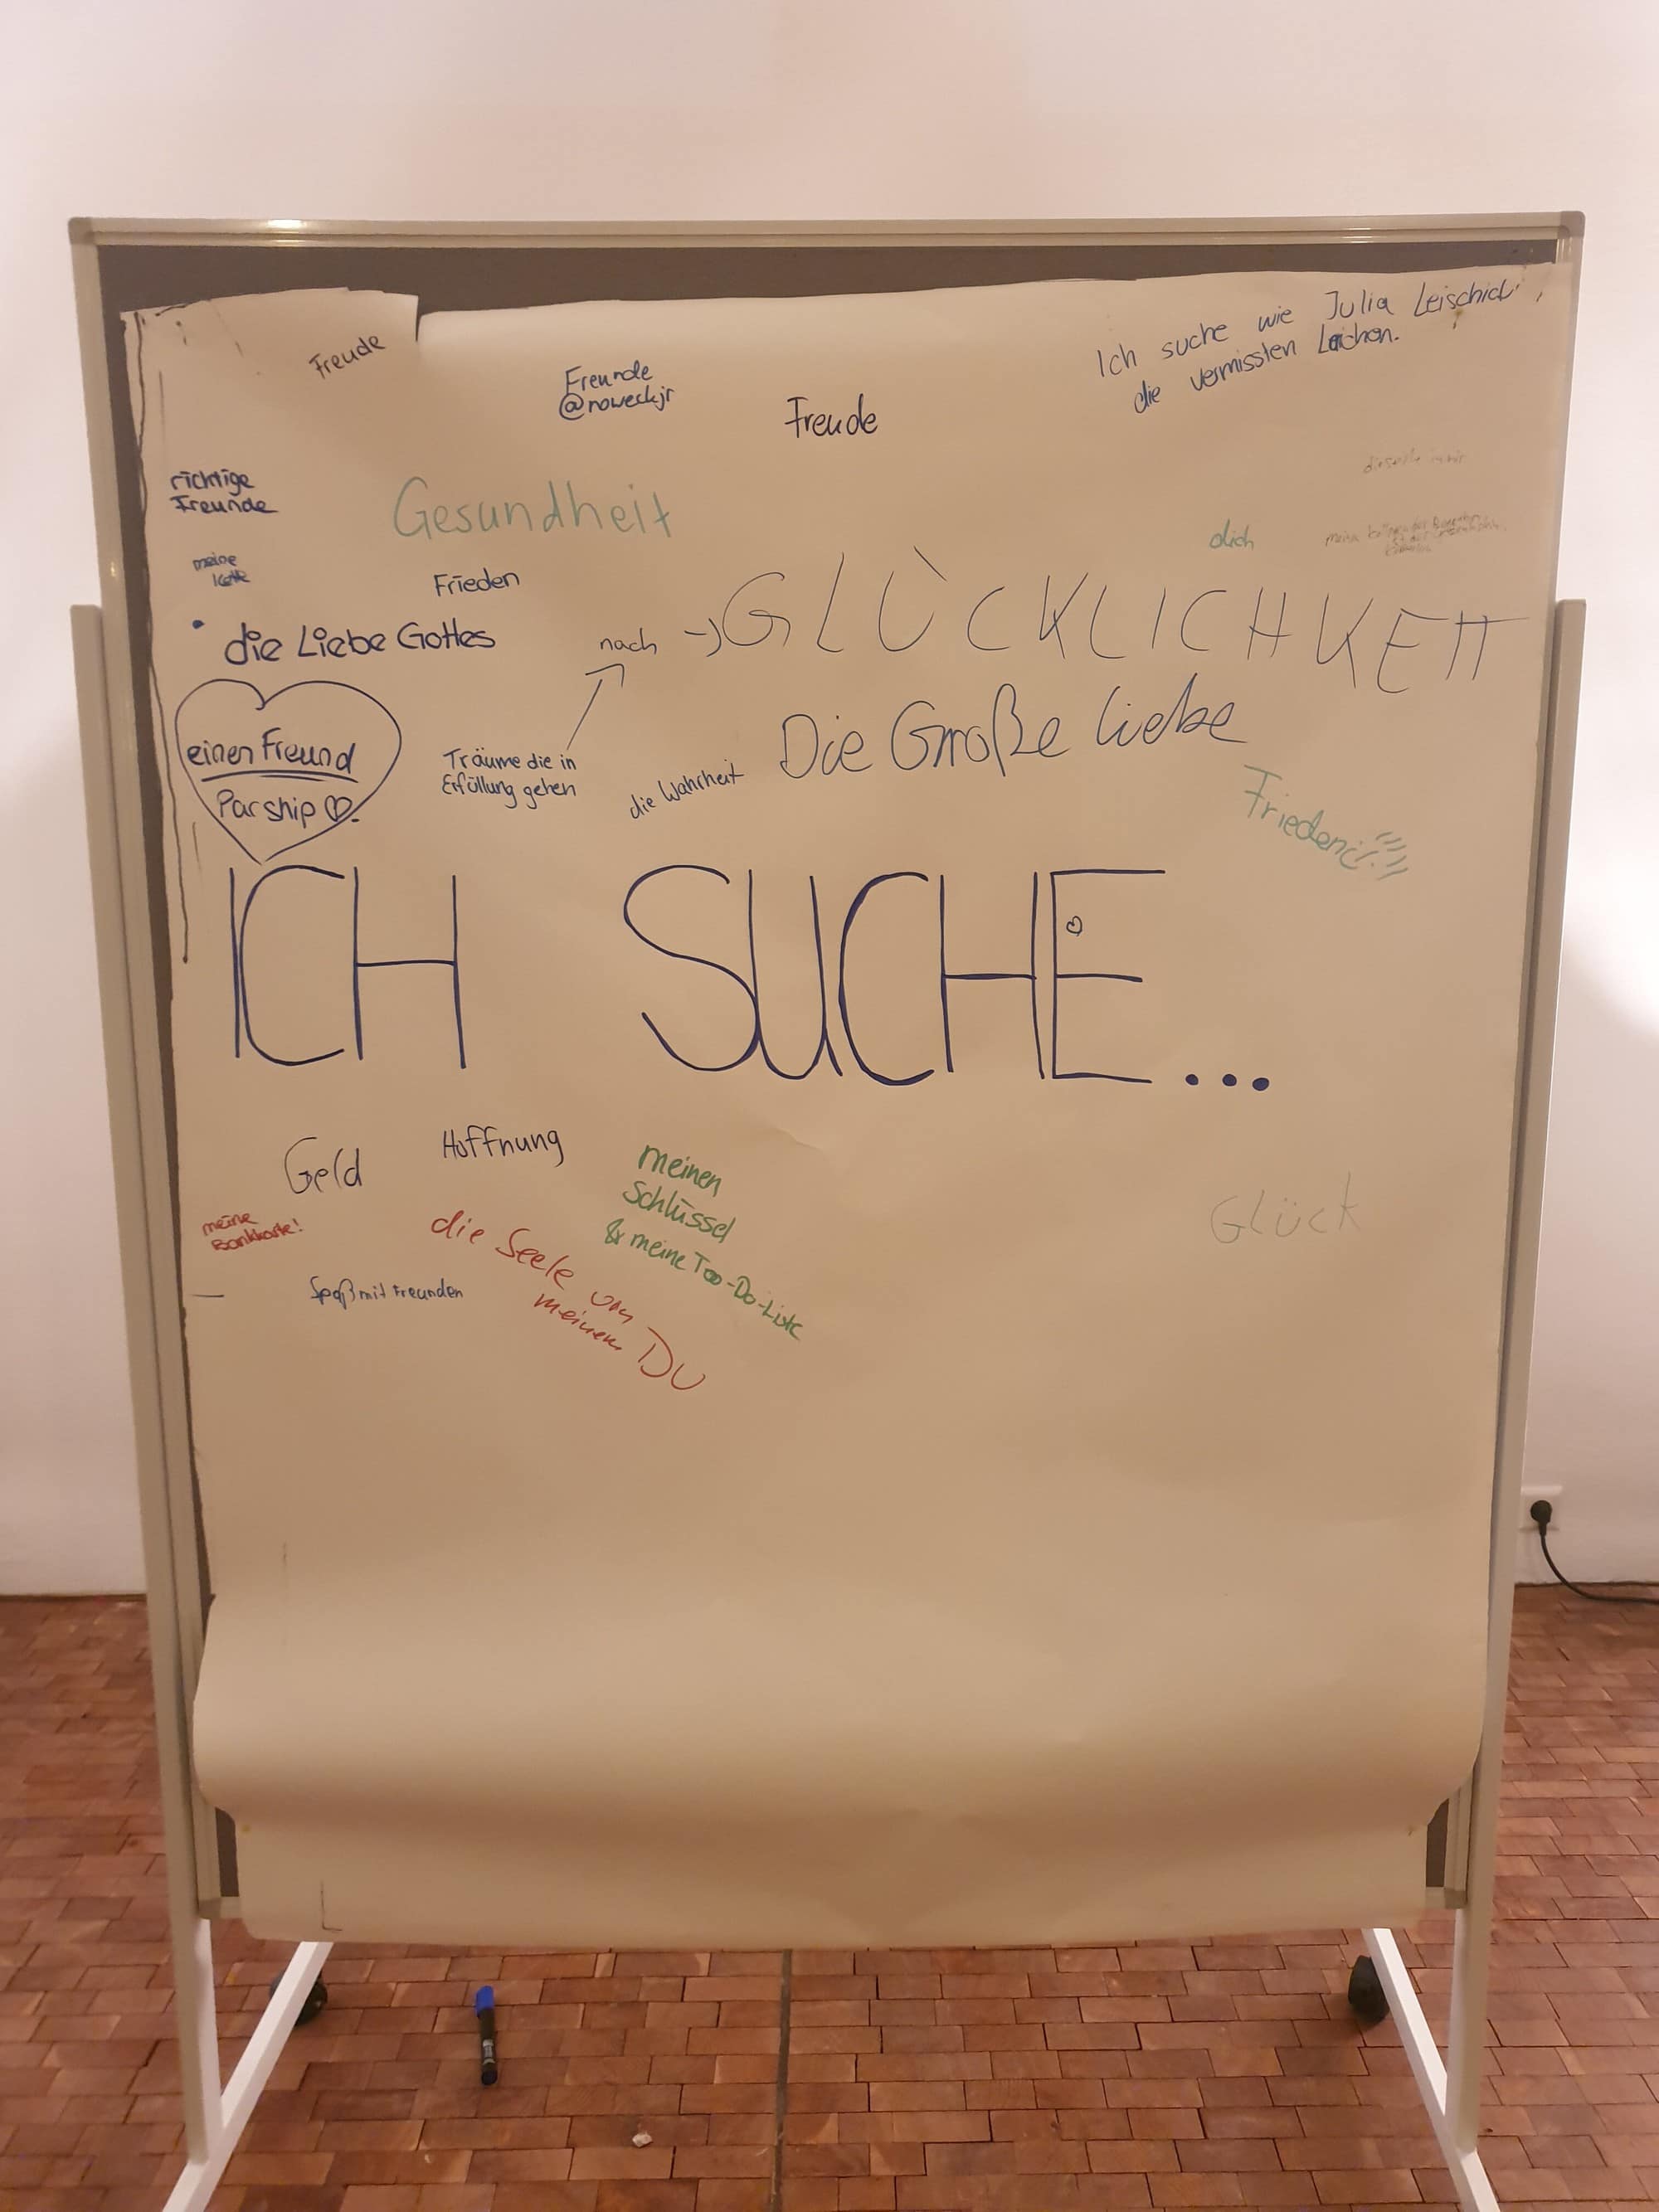 Freude
Freunde
@noweckjr
Freude
Ich suche wie Julia Leischick
die vermissten Leichen.
richtige
Freunde
Gesundheit
dich
meine
Kette
Frieden
die Liebe Gottes
nach → GLÜCKLICHKEIT
einen Freund
Parship
Träume die in
Erfüllung gehen
die Wahrheit
Die Große Liebe
Frieden
ICH SUCHE...
Geld
Hoffnung
meinen
Schlüssel
& meine Too-Do-Liste
meine
Bankkarte!
die Seele von
meinem DU
Spaß mit Freunden
Glück